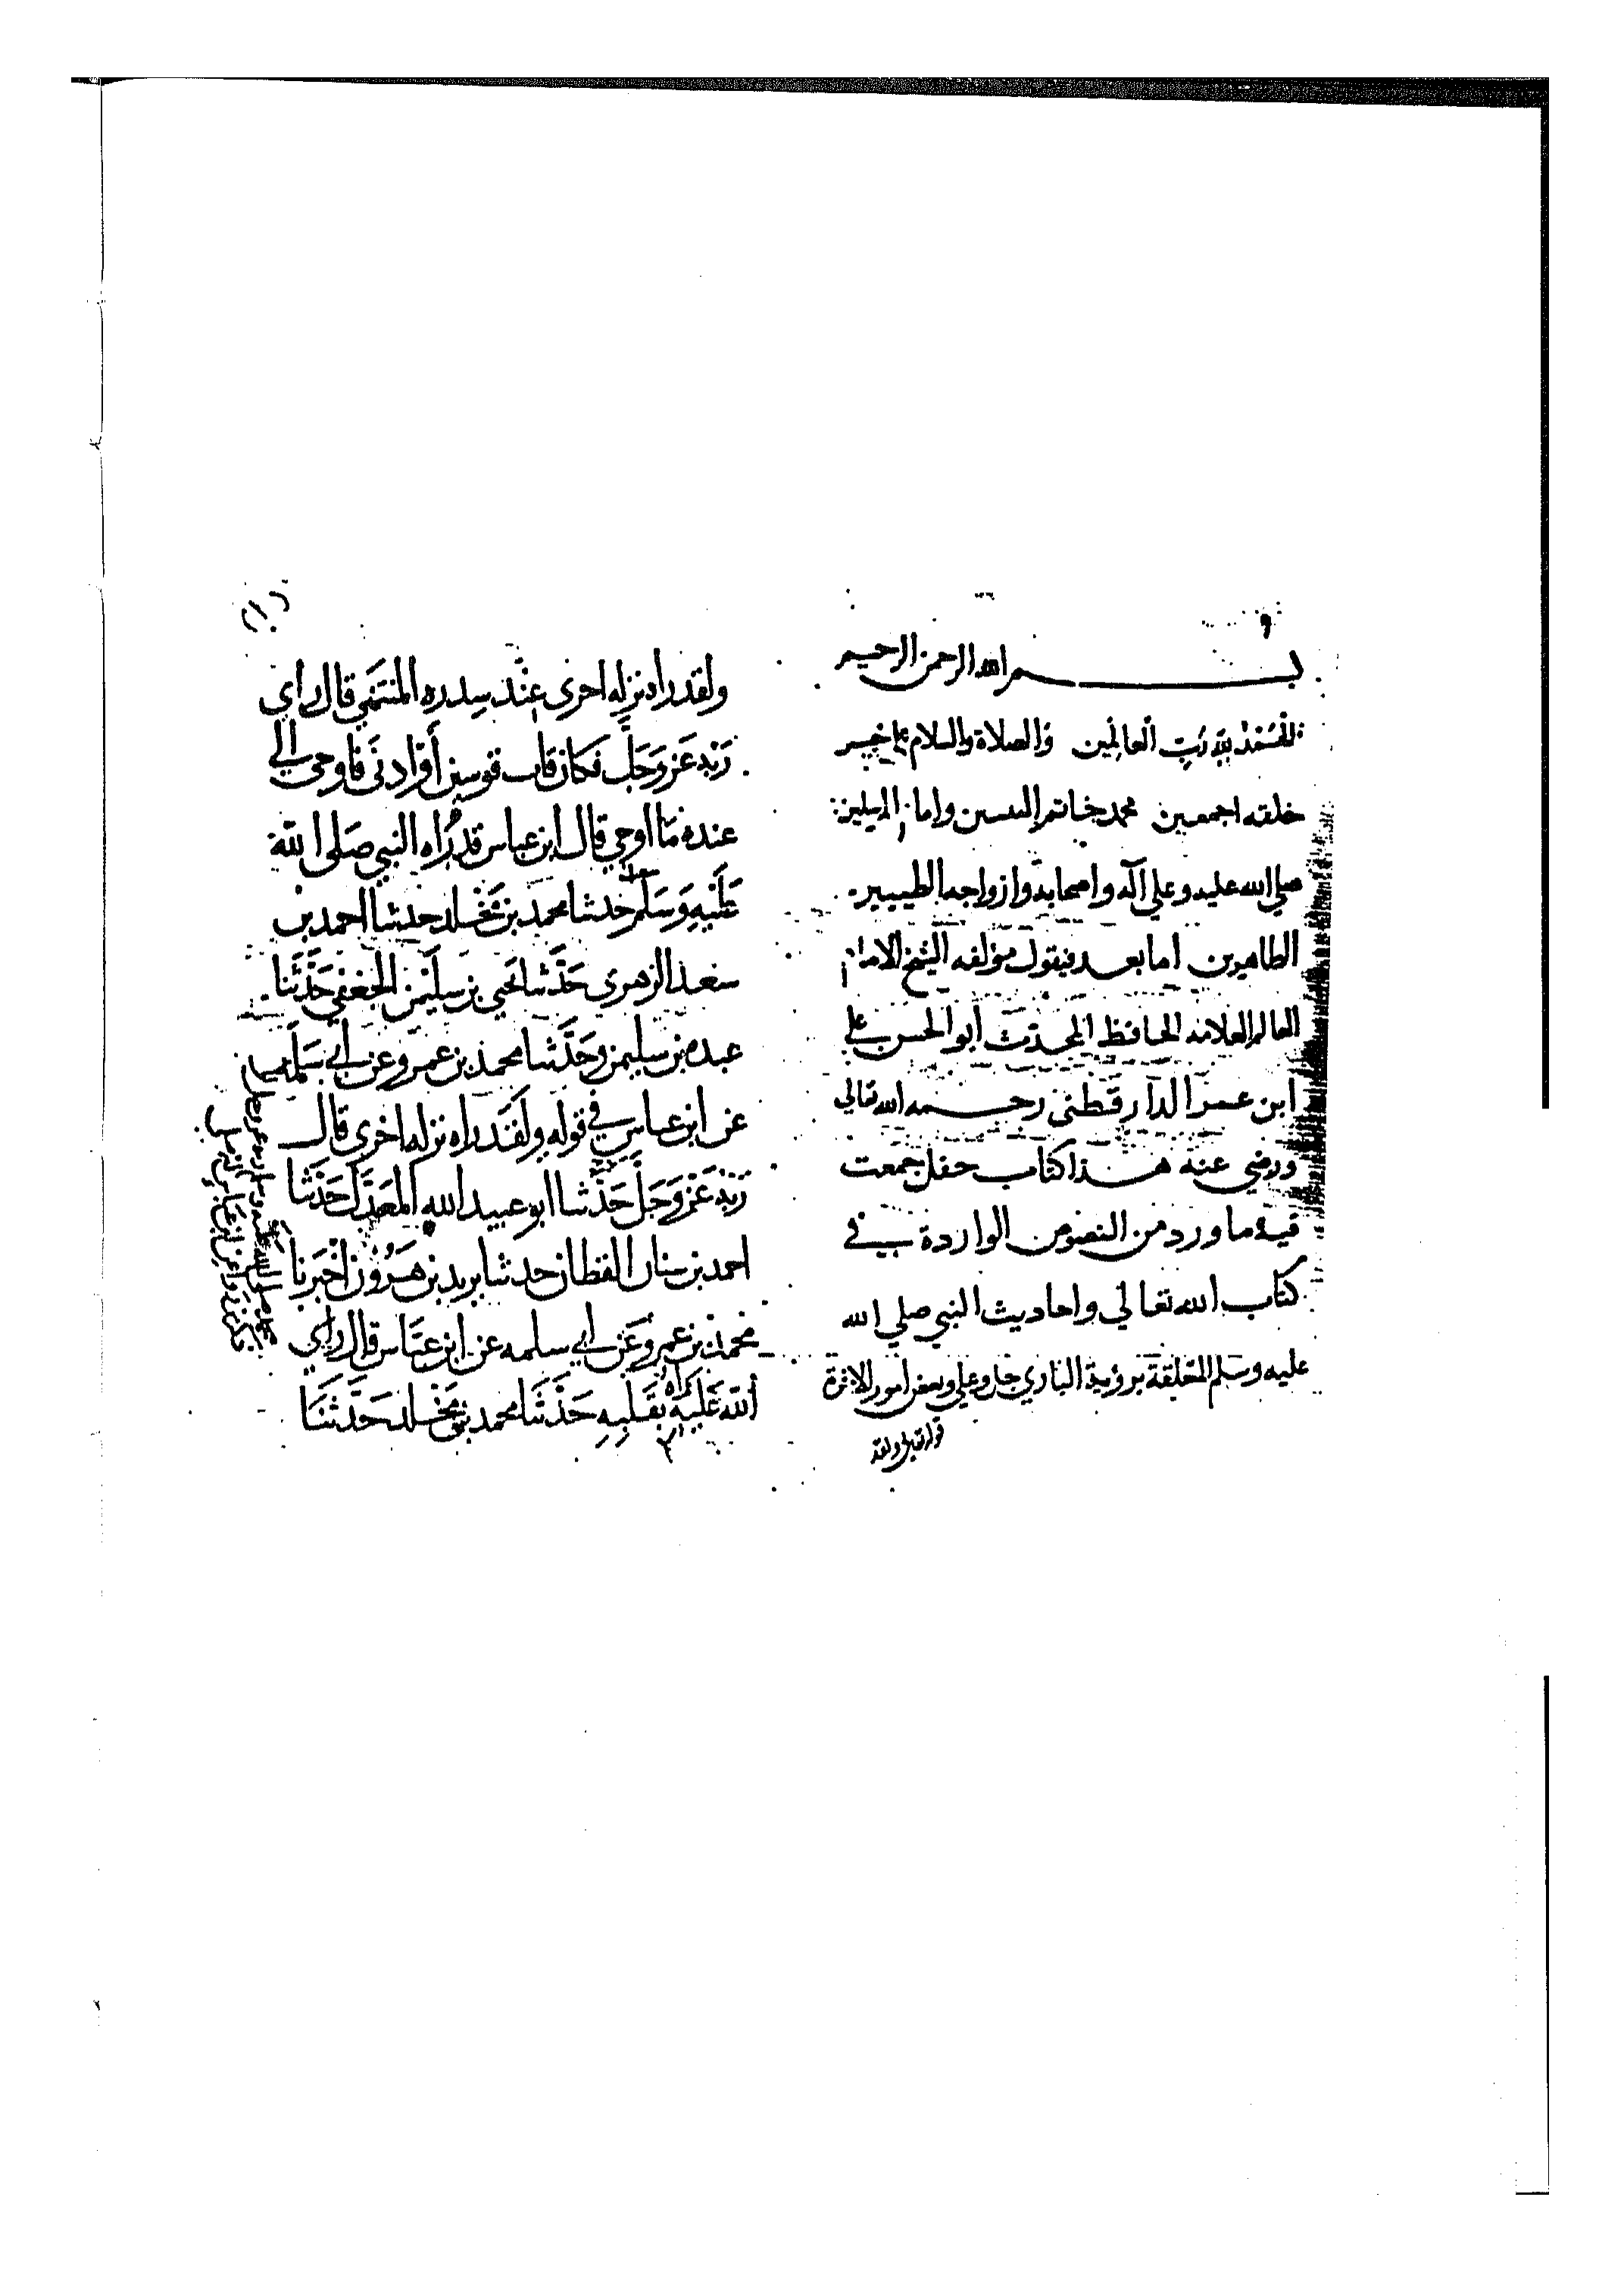 بسم الله الرحمن الرحيم
الحمد لله رب العالمين والصلاة والسلام على خير
خلقه اجمعين محمد خاتم النبيين وامام المرسلين
صلي الله عليه وعلي آله واصحابه وازواجه الطيبين
الطاهرين اما بعد فيقول مؤلفه الشيخ الامام
العالم العلامة الحافظ المحدث أبو الحسن علي
ابن عمر الدارقطني رحمه الله تعالي
ورضي عنه هذا كتاب حفل جمعت
فيه ما ورد من النصوص الواردة في
كتاب الله تعالي واحاديث النبي صلي الله
عليه وسلم المتعلقة برؤية الباري جل وعلي وبعض امور الاخرة
قوله تعالى ولقد
(١٠)
ولقد راه نزله اخرى عند سدره المنتهي قال راي
ربه عز وجل فكان قاب قوسين أو ادنى فاوحى الي
عبده ما اوحي قال ابن عباس قد راه النبي صلى الله
عليه وسلم حدثنا محمد بن مخلد حدثنا احمد بن
سعد الزهري حدثنا يحيي بن سليمن الجعفي حدثنا
عبده بن سليمن وحدثنا محمد بن عمرو عن ابي سلمه
عن ابن عباس في قوله ولقد راه نزله اخرى قال
ربه عز وجل حدثنا ابو عبيد الله المعدل حدثنا
احمد بن سنان القطان حدثنا يزيد بن هرون اخبرنا
محمد بن عمرو عن ابي سلمه عن ابن عباس قال راي
الله عليه بقلبه حدثنا محمد بن مخلد حدثنا